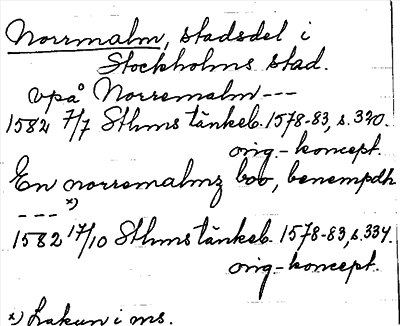 Norrmalm, stadsdel i
Stockholms stad.
vpå Norremalm ---
1582 7/7 Sthms tänkeb. 1578-83, s. 320.
orig.-koncept.
En norremalmz boo, benempdh
---x)
1582 17/10 Sthms tänkeb. 1578-83, s. 334.
orig.-koncept.
x) Lakun i ms.